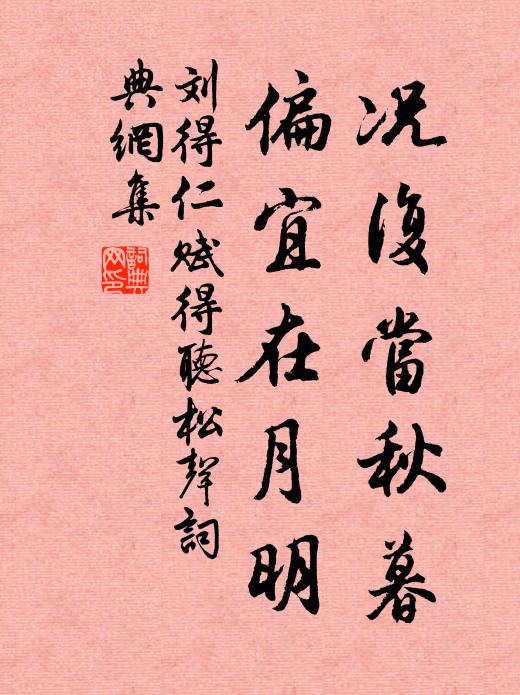 况復當秋暮
偏宜在月明
刘得仁賦得聽松聲詞
典網集
詞典
网印